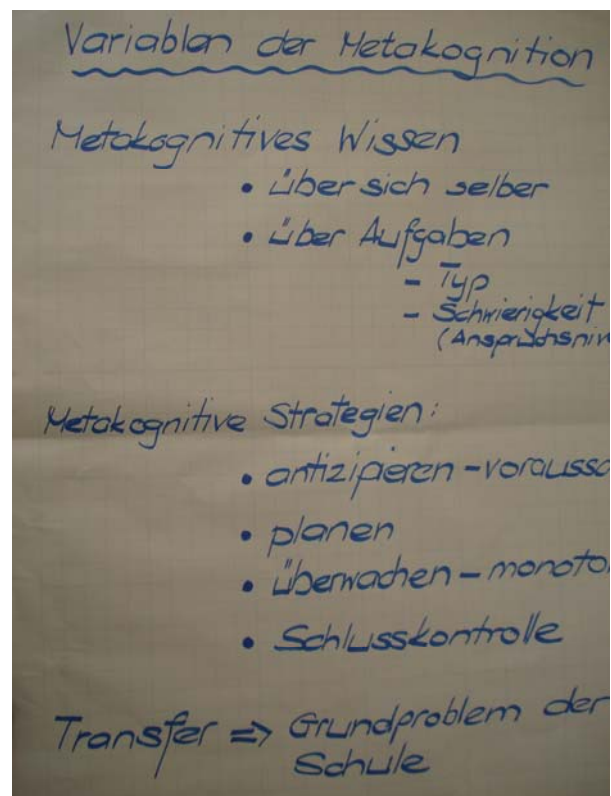 Variablen der Metakognition
Metakognitives Wissen
• über sich selber
• über Aufgaben
- Typ
- Schwierigkeit
(Anspruchsniv
Metakognitive Strategien:
• antizipieren - voraussc
• planen
• überwachen - monoto
• Schlusskontrolle
Transfer => Grundproblem der
Schule